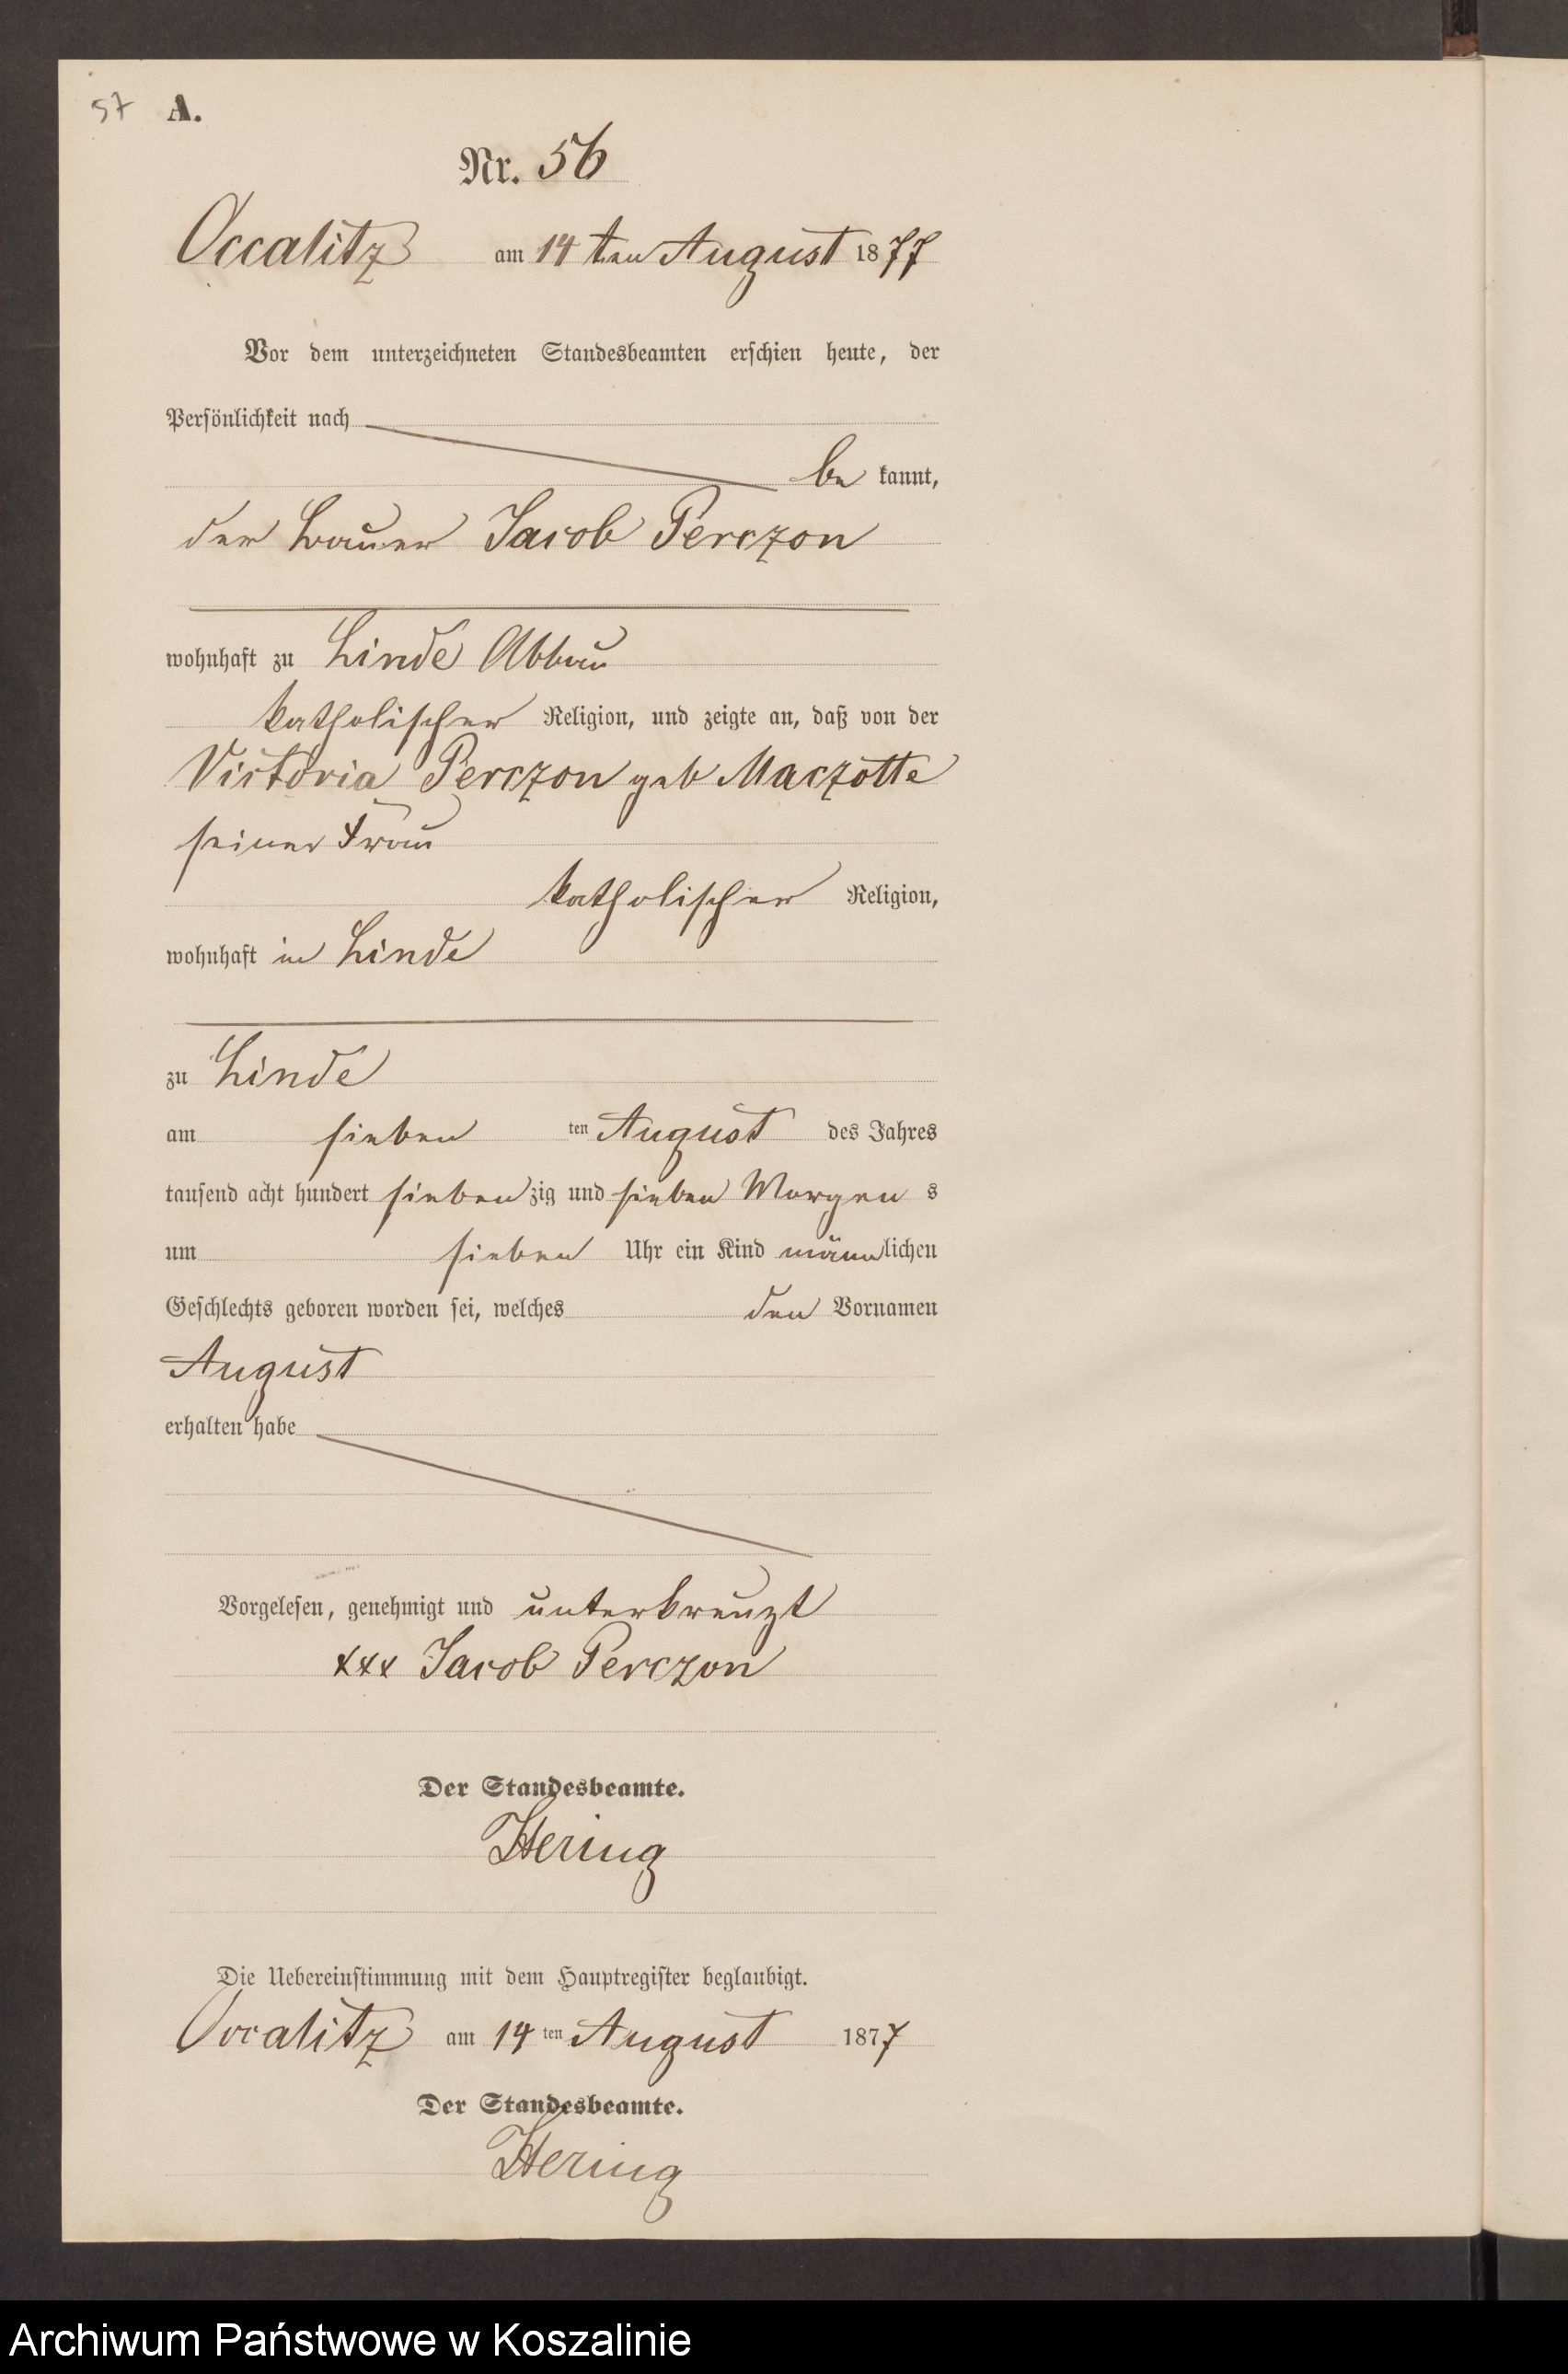 57 A.
Nr. 56
Occalitz am 14 ten August 1877
Vor dem unterzeichneten Standesbeamten erschien heute, der
Persönlichkeit nach
be kannt,
der Bauer Jacob Perczon
wohnhaft zu Linde Abbau
katholischer Religion, und zeigte an, daß von der
Victoria Perczon geb Maczotte
seiner Frau
katholischer Religion,
wohnhaft in Linde
zu Linde
am sieben ten August des Jahres
tausend acht hundert siebenzig und sieben Morgen s
um sieben Uhr ein Kind männlichen
Geschlechts geboren worden sei, welches den Vornamen
August
erhalten habe
Vorgelesen, genehmigt und unterkreuzt
xxx Jacob Perczon
Der Standesbeamte.
Hering
Die Uebereinstimmung mit dem Hauptregister beglaubigt.
Occalitz am 14 ten August 1877
Der Standesbeamte.
Hering
Archiwum Państwowe w Koszalinie